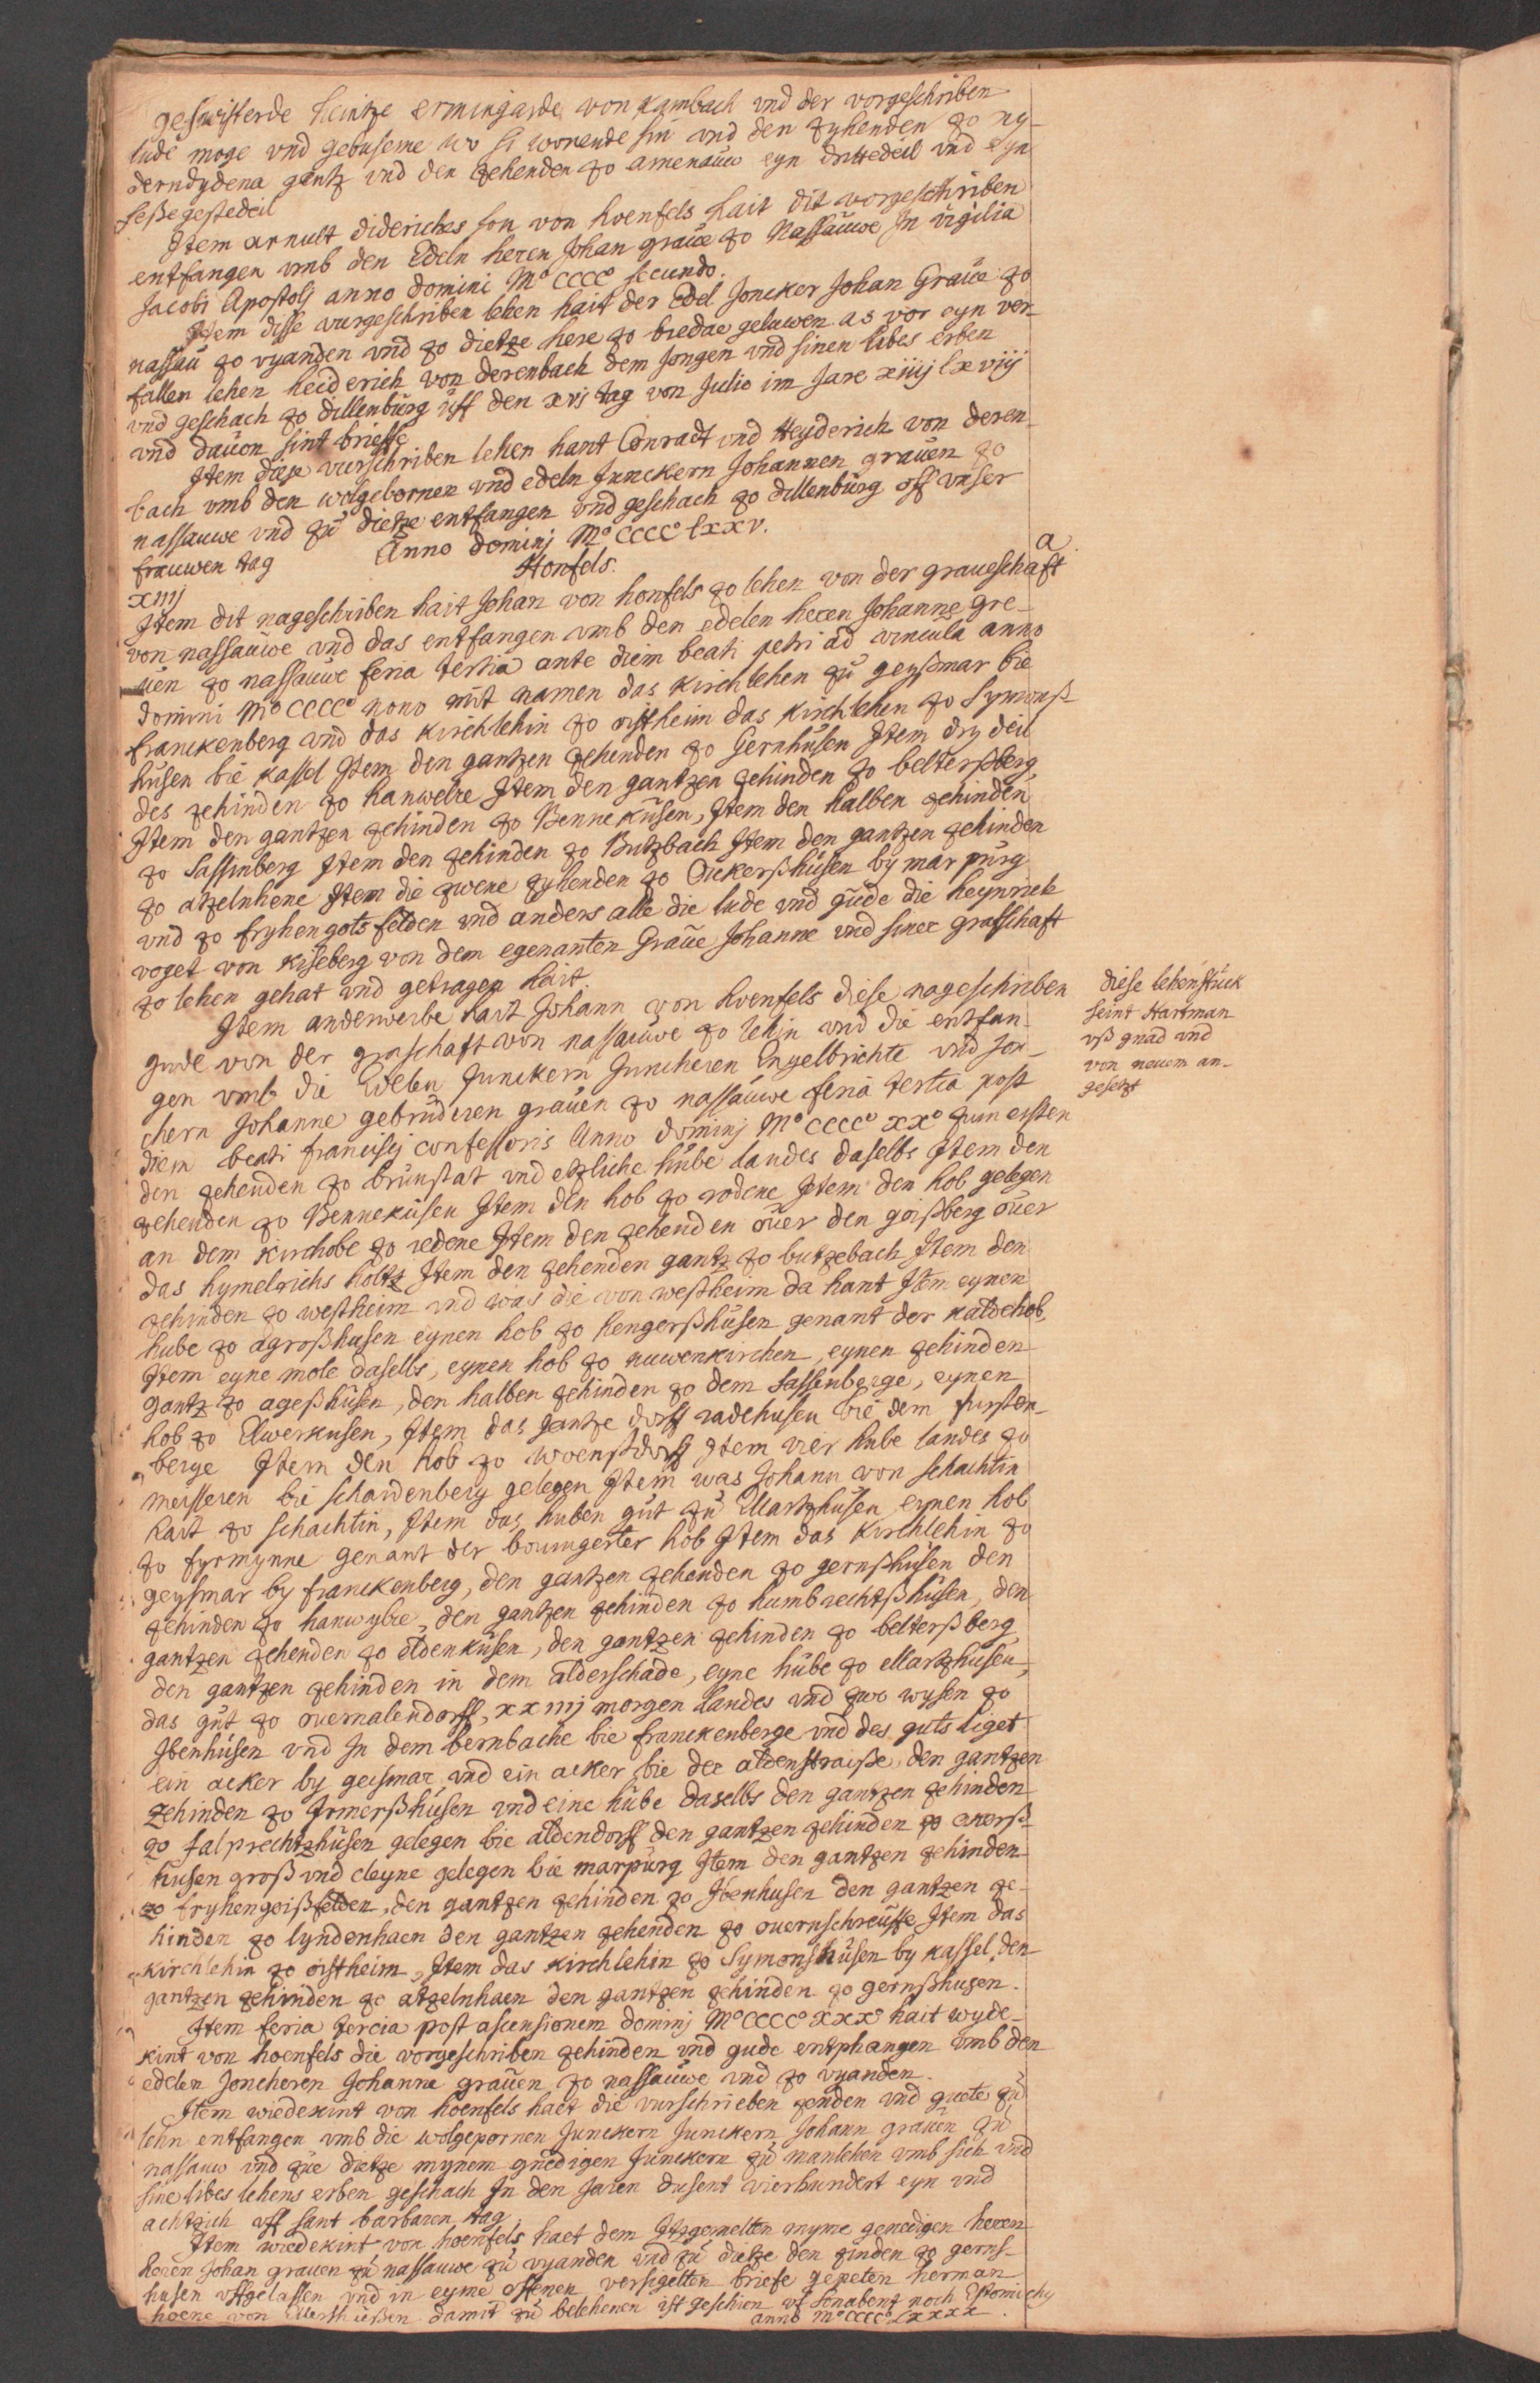 geswisterde heintze ermingarde von kambach vnd der vorgeschriben
lude moge vnd gebuseme wo si wonende sin vnd den zyhenden zo ny-
derndydena gantz vnd den zehenden zo amenauw eyn drittedeil vnd eyn
seßegestedeil
Item arnult dideriches son von hoenfels hait dit vorgeschriben
entfangen vmb den Edeln heren Johan graue zo Nassauwe In vigilia
Jacobi Apostolj anno domini Mº CCCCº secundo.
Item disse vurgeschriben lehen hait der Edel Joncker Johan Graue zo
nassau zo vyanden vnd zo dietze here zo bredae geluwen as vor eyn ver-
fallen lehen heiderich von derenbach dem Jongen vnd sinen libes erben
vnd geschach zo dillenburg vff den xvj tag von Julio im Jare xiiij lxviij
vnd dauon sint brieffe
Item diese vurschriben lehen hant Conradt vnd Heyderich von deren-
bach vmb den wolgebornen vnd edeln Junckern Johannen grauen zo
nassauwe vnd zu dietze entfangen vnd geschach zo dillenburg off vnser
frauwen tag Anno dominj Mº CCCCº lxxv.
Honfels. a
xiiij
Item dit nageschriben hait Johan von honfels zo lehen von der graueschaft
von nassauwe vnd das entfangen vmb den edelen heren Johanne gre-
uen zo nassauwe feria tertia ante diem beati petri ad vincula anno
domini Mº CCCCº nono mit namen das kirchlehen zu geyßmar bie
franckenberg vnd das kirchlehin zo ostheim das kirchlehen zo Symonß-
husen bie kassel Item den gantzen zehenden zo Gernhusen Item dry deil
des zehinden zo hanwelre Item den gantzen zehinden zo belterßberg,
Item den gantzen zehinden zo Bennekusen, Item den halben zehinden
zo Sassinberg Item den zehinden zo Butzbach Item den gantzen zehinden
zo atzelnhene Item die zwene zyhenden zo Ockerßhusen by marpurg
vnd zo fryhengotsfelden vnd anders alle die lude vnd gude die heynrich
voget von kiseberg von dem egenanten Graue Johanne vnd siner graffschaft
zo lehen gehat vnd getragen hait.
Item anderwerbe hait Johann von hoenfels diese nageschriben
gude von der graschaft von nassauwe zo lehin vnd die entfan-
gen vmb die Edelen Junckern Juncheren Engelbrichte vnd Jon-
chern Johanne gebruderen grauen zo nassauwe feria tertia post
diem beati francisj confessoris Anno dominj Mº CCCCº xxº zum ersten
den zehenden zo brunstat vnd etzliche hube landes daselbs Item den
zehenden zo Bennekusen Item den hob zo rodene Item den hob gelegen
an dem kirchobe zo redene Item den zehenden ouer den goißberg ouer
das hymelrichs holtz Item den zehenden gantz zo butzebach Item den
zehinden zo westheim vnd was die von westheim da hant Item eynen
hube zo agroßhusen eynen hob zo hengerßhusen genant der kaldehob,
Item eyne mole daselbs, eynen hob zo nuwenkirchen, eynen zehinden
gantz zo ageßhusen, den halben zehinden zo dem Sassenberge, eynen
hob zo Elwerkusen, Item das gantze dorff radehusen bie dem fursten-
berge Item den hob zo woenstdorff Item vier hube landes zo
meisseren bie schardenberg gelegen Item was Johann von schachtin
hait zo schachtin, Item das huben gut zu Martzhusen eynen hob
zo fyrmynne genant der boumgerter hob Item das kirchlehin zo
geysmar by franckenberg, den gantzen zehenden zo gernßhusen den
zehinden zo hanwylre, den gantzen zehinden zo humbrechtßhusen, den
gantzen zehenden zo aldenkusen, den gantzen zehinden zo belterßberg
den gantzen zehinden in dem alderschade, eyne hube zo Martzhusen,
das gut zo ouernalendorff, xxiiij morgen landes vnd zwo wysen zo
Ibenhusen vnd In dem bernbache bie franckenberge vnd des guts liget
ein acker by geismar vnd ein acker bie der aldenstraiße, den gantzen
zehinden zo Irmerßhusen vnd eine hube daselbs den gantzen zehinden
zo falprechtzhusen gelegen bie aldendorff den gantzen zehinden zo oxerß-
husen groß vnd cleyne gelegen bie marpurg Item den gantzen zehinden
zo fryhengoißfelden, den gantzen zehinden zo Ibenhusen den gantzen ze-
hinden zo lyndenhaen den gantzen zehenden zo ouernschreuffe, Item das
kirchlehin zo ostheim, Item das kirchlehin zo Symonshusen by kassel, den
gantzen zehinden zo atzelnhaen den gantzen zehinden zo gernßhusen.
Item feria tercia post ascensionem dominj Mº CCCCº xxxº hait wyde-
kint von hoenfels die vorgeschriben zehinden vnd gude entphangen vmb den
edelen Joncheren Johanne grauen zo nassauwe vnd zo vyanden.
Item wiedekint von hoenfels haet die vurschrieben zenden vnd guete zu
lehn entfangen vmb die wolgepornen Junckern Junckern Johann grauen zu
nassauw vnd zue dietze mynem gnedigen Junckern zu manlehen vmb sich vnd
sine libes lehens erben geschach In den Jaren dusent vierhundert eyn vnd
achtzich vff sant barbaren tag.
Item wiedekint von hoenfels haet dem Itzgemelten myme genedigen heren
heren Johan grauen zu nassauwe zu vyanden vnd zu dietze den zinden zo gerns-
husen vffgelassen vnd in eyme offenen versigelten briefe gepeten herman
hoene von damit zu belehenen ist geschien vf sonabent noch
anno Mº CCCCº lxxxx.
diese lehenstuck
seint Hartman
vß gnad vnd
von neuem an-
gesetzt